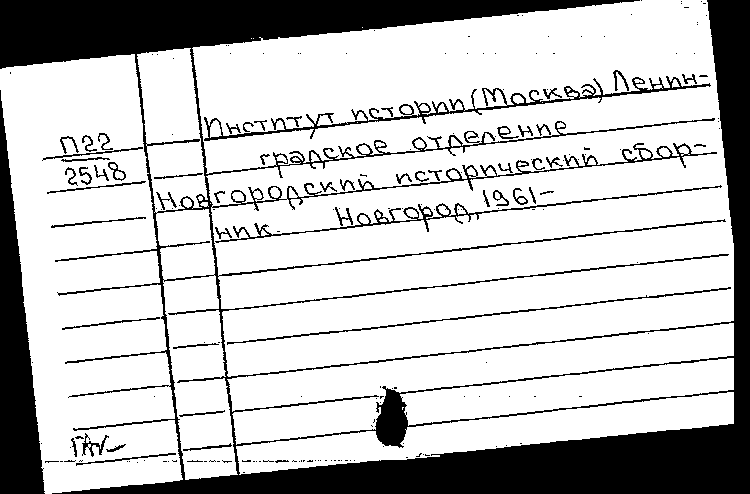 П22
2548
Институт истории (Москва) Ленин-
градское отделение
Новгородский исторический сбор-
ник. Новгород, 1961-